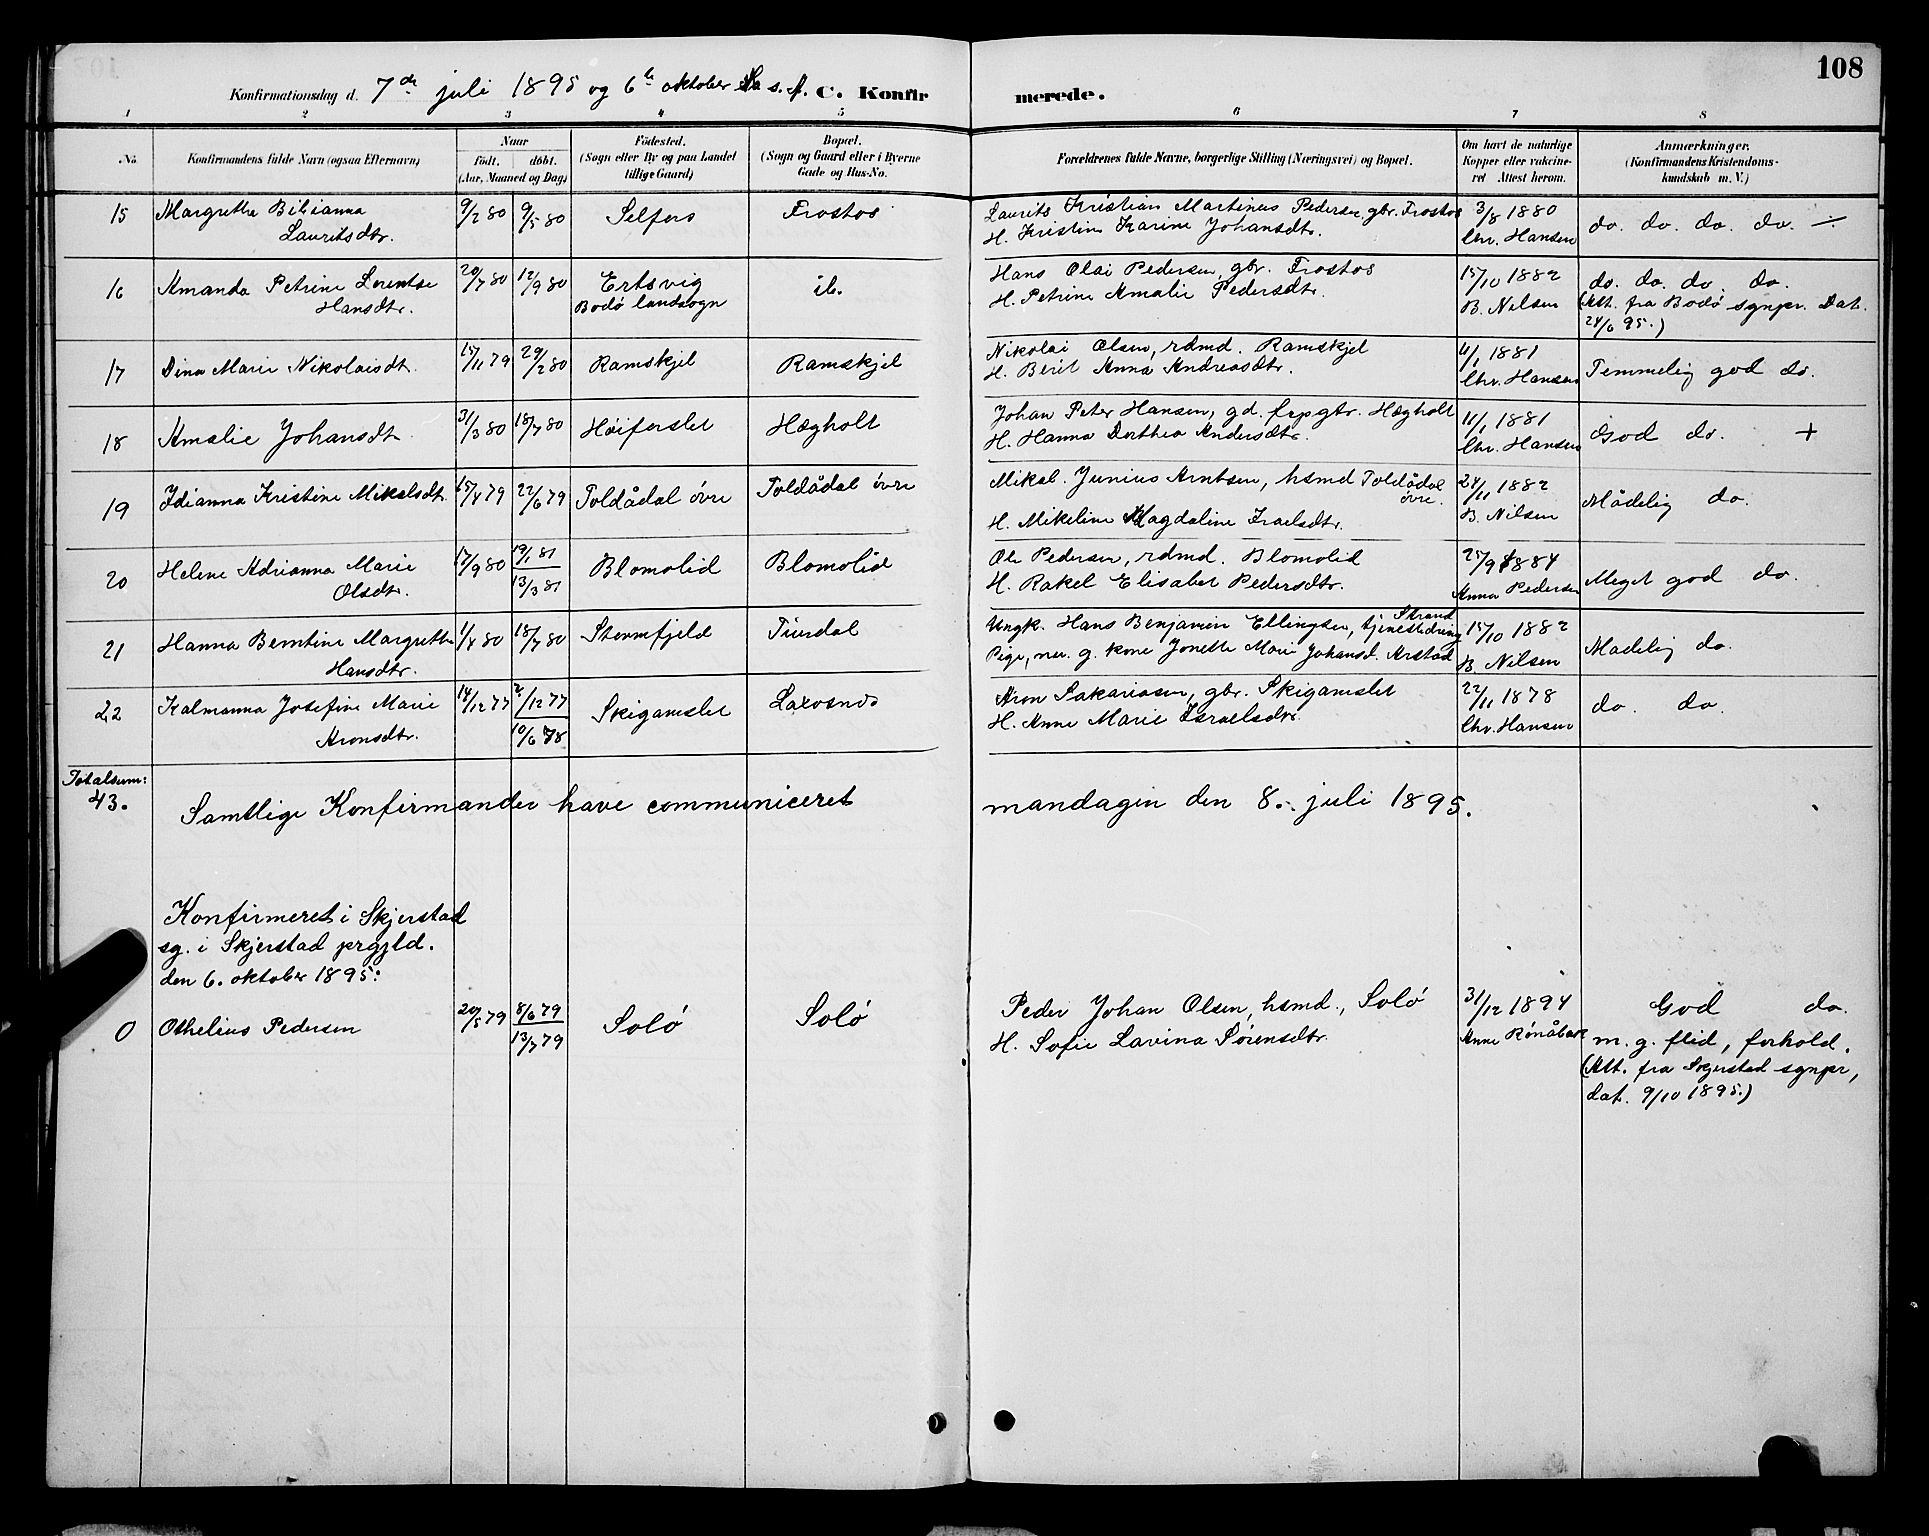 108
Konfirmationsdag d. 7de juli 1895 og 6te oktober s. A. C. Konfir merede.
1 2 3 4 5 6 7 8
No.
Konfirmandens fulde Navn (ogsaa Efternavn)
Naar
født. døbt.
(Aar, Maaned og Dag)
Födested.
(Sogn eller By og paa Landet
tillige Gaard)
Bopæl.
(Sogn og Gaard eller i Byerne
Gade og Hus-No.
Forældrenes fulde Navne, borgerlige Stilling (Næringsvei) og Bopæl.
Om havt de naturlige
Kopper eller vakcine-
ret Attest herom.
Anmærkninger.
(Konfirmandens Kristendoms-
kundskab m. V.)
15 Margrethe Bilianna 9/2 80 9/5 80 Selfors Frostos Laurits Kristian Martinus Pedersen, gbr. Frostos 3/8 1880 do. do. do. do. ÷
Lauritsdtr. H. Kristine Karine Johansdtr. Chr. Hansen
16 Amanda Petrine Lorentse 20/7 80 12/9 80 Ertsvig ib. Hans Olai Pedersen, gbr. Frostos 15/10 1882 do. do. do. do.
Hansdtr. Bodø landsogn H. Petrine Amalie Pedersdtr. B. Nilsen (Att. fra Bodø sgnpr. Dat.
24/6 95.)
17 Dina Marie Nikolaisdt. 15/11 79 29/2 80 Ramskjel Ramskjel Nikolai Olsen, rdmd. Ramskjel 11/1 1881 Temmelig god do.
H. Berit Anna Andreasdtr. Chr. Hansen
18 Amalie Johansdt. 31/3 80 18/7 80 Høiferslet Hægholt Johan Peter Hansen, gd. frpgbr. Hægholt 11/1 1881 God do. +
H. Hanna Dorthea Andersdtr. Chr. Hansen
19 Idianna Kristine Mikalsdt. 15/4 79 22/6 79 Toldådal övre Toldådal övre Mikal Junius Arntsen, hsmd Toldådal 24/11 1882 Mådelig do.
övre.
H. Mikeline Magdaline Israelsdtr. B. Nilsen
20 Helene Adrianna Marie 17/9 80 19/1 81 Blomolid Blomolid Ole Pedersen, rdmd. Blomolid 25/9 1884 Meget god do.
Olsdtr. 13/3 81 H. Rakel Elisabet Pedersdtr. Anna Pedersen
21 Hanna Berntine Margrethe 1/4 80 18/7 80 Stormfjeld Tuvdal Ungk. Hans Benjamin Ellingsen, tjenestedreng Strand 15/10 1882 Madelig do.
Hansdtr. Pige, nu. g. kone Jonette Marie Johansd. Arstad B. Nilsen
22 Kalmanna Josefine Marie 14/12 77 2/12 77 Skigamslet Laxosnes Aron Sakariasen, gbr. Skigamslet 22/11 1878 do. do.
Aronsdtr. 10/6 78 H. Anne Marie Israelsdtr. Chr. Hansen
Totalsum:
43.
Samtlige Konfirmander have communiceret mandagen den 8. juli 1895.
Konfirmeret i Skjerstad
sg. i Skjerstad prgjld.
den 6. oktober 1895:
0 Othelius Pedersen 20/5 79 8/6 79 Solö Solö Peder Johan Olsen, hsmd., Solö 31/12 1894 God do.
13/7 79 H. Sofie Lavina Sörensdtr. Anne Rönåbæk m. g. flid, forhold.
(Att. fra Skjerstad sgnpr,
dat. 9/10 1895.)